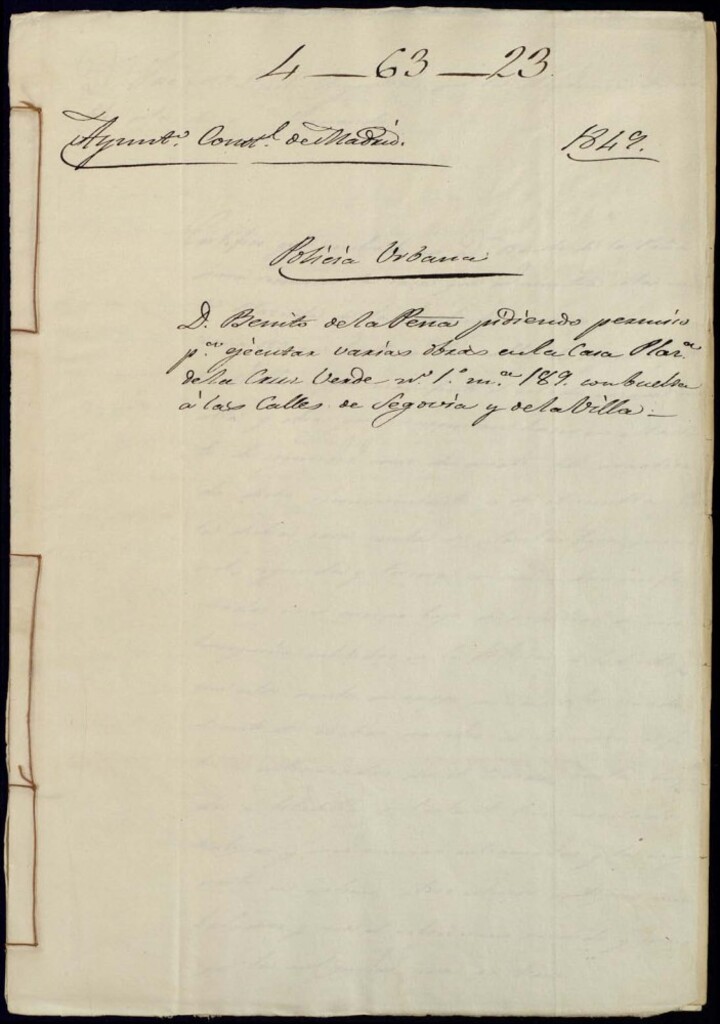 4 — 63 — 23.
Ayunto. Constl. de Madrid. 1849.
Policia Urbana
D. Benito de la Peña pidiendo permiso
pa. ejecutar varias obras en la Casa Plaza.
de la Cruz Verde no. 1o. ma. 189. con buelta
á las Calles de Segovia y de la Villa —